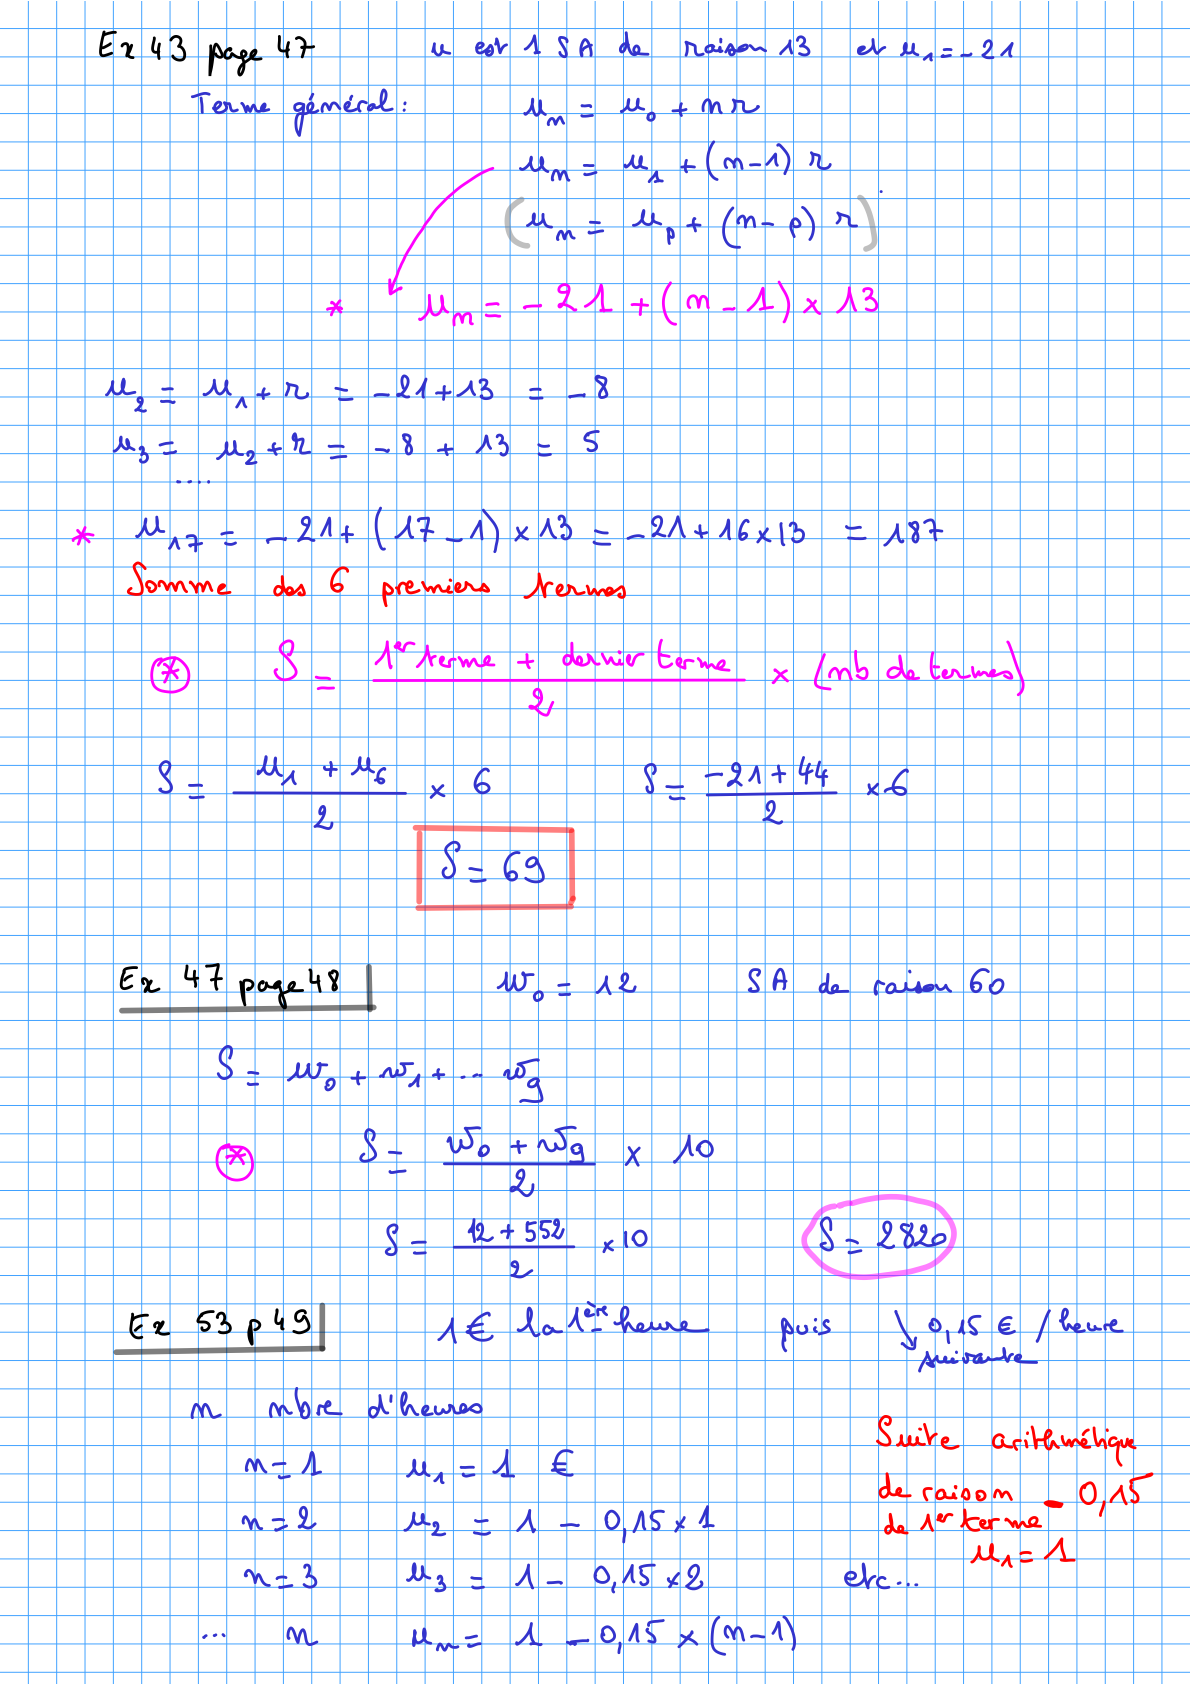 Ex 43 page 47 u est 1 SA de raison 13 et u₁ = -21
Terme général : uₙ = u₀ + n r
uₙ = u₁ + (n-1) r
(uₙ = uₚ + (n-p) r)
* uₙ = -21 + (n-1) × 13
u₂ = u₁ + r = -21+13 = -8
u₃ = u₂ + r = -8 + 13 = 5
....
* u₁₇ = -21 + (17-1) × 13 = -21 + 16 × 13 = 187
Somme des 6 premiers termes
* S = (1er terme + dernier terme) / 2 × (nb de termes)
S = (u₁ + u₆) / 2 × 6 S = (-21 + 44) / 2 × 6
S = 69
Ex 47 page 48 w₀ = 12 SA de raison 60
S = w₀ + w₁ + ... w₉
* S = (w₀ + w₉) / 2 × 10
S = (12 + 552) / 2 × 10 S = 2820
Ex 53 p 49 1€ la 1ère heure puis ↘ 0,15 € / heure
suivante
n nbre d'heures
Suite arithmétique
n = 1 u₁ = 1 €
de raison - 0,15
n = 2 u₂ = 1 - 0,15 × 1
de 1er terme
u₁ = 1
n = 3 u₃ = 1 - 0,15 × 2 etc...
... n uₙ = 1 - 0,15 × (n-1)